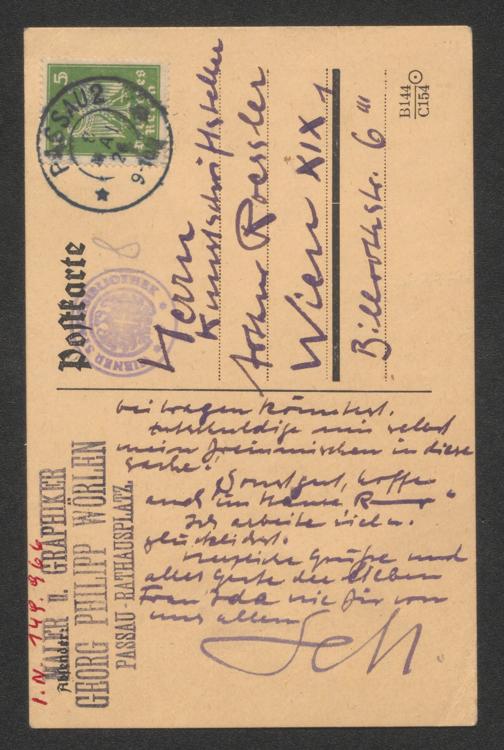 5
PASSAU 2
9-10
8
Postkarte
WIENER STADTBIBLIOTHEK
Herrn
Kunstschriftsteller
Arthur Roessler
Wien XIX,
Billrothstr. 6 III
B144
C154
beitragen könntest.
Entschuldige mir selbst
mein Dreinmischen in diese
Sache!
"Sonst gut, hoffe
auch im Hause R
Ich arbeite viel u.
glücklichst.
Grüße und
alles Gute der lieben
Frau Ida wie für von
uns allen
I.N. 149.966
Absender:
MALER U. GRAPHIKER
GEORG PHILIPP WÖRLEN
PASSAU-RATHAUSPLATZ